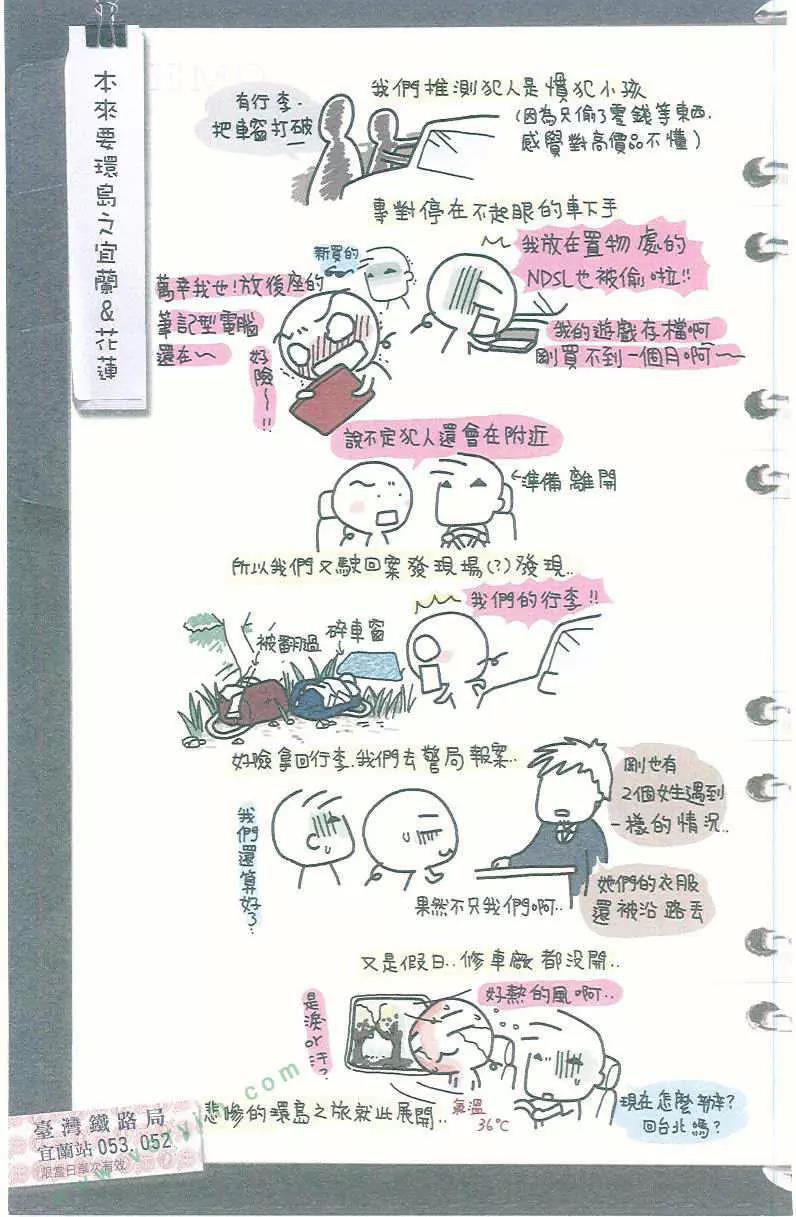 本來要環島之宜蘭&花蓮
有行李.
把車窗打破
我們推測犯人是慣犯小孩
(因為只偷了零錢等東西.
感覺對高價品不懂)
專對停在不起眼的車下手
新買的
我放在置物處的
NDSL也被偷啦!!
萬幸我ㄝ!放後座的
筆記型電腦
還在~~
好險~!!
我的遊戲存檔啊~
剛買不到一個月啊~~
說不定犯人還會在附近
←準備離開
所以我們又駛回案發現場(?)發現..
我們的行李!!
被翻過
碎車窗
好險拿回行李.我們去警局報案..
剛也有
2個女生遇到
一樣的情況..
我們還算好了..
她們的衣服
還被沿路丟
果然不只我們啊..
又是假日..修車廠都沒開..
好熱的風啊..
是淚or汗?
氣溫
36°C
悲慘的環島之旅就此展開..
現在怎麼辦?
回台北嗎?
臺灣鐵路局
宜蘭站 053.052
限當日單次有效